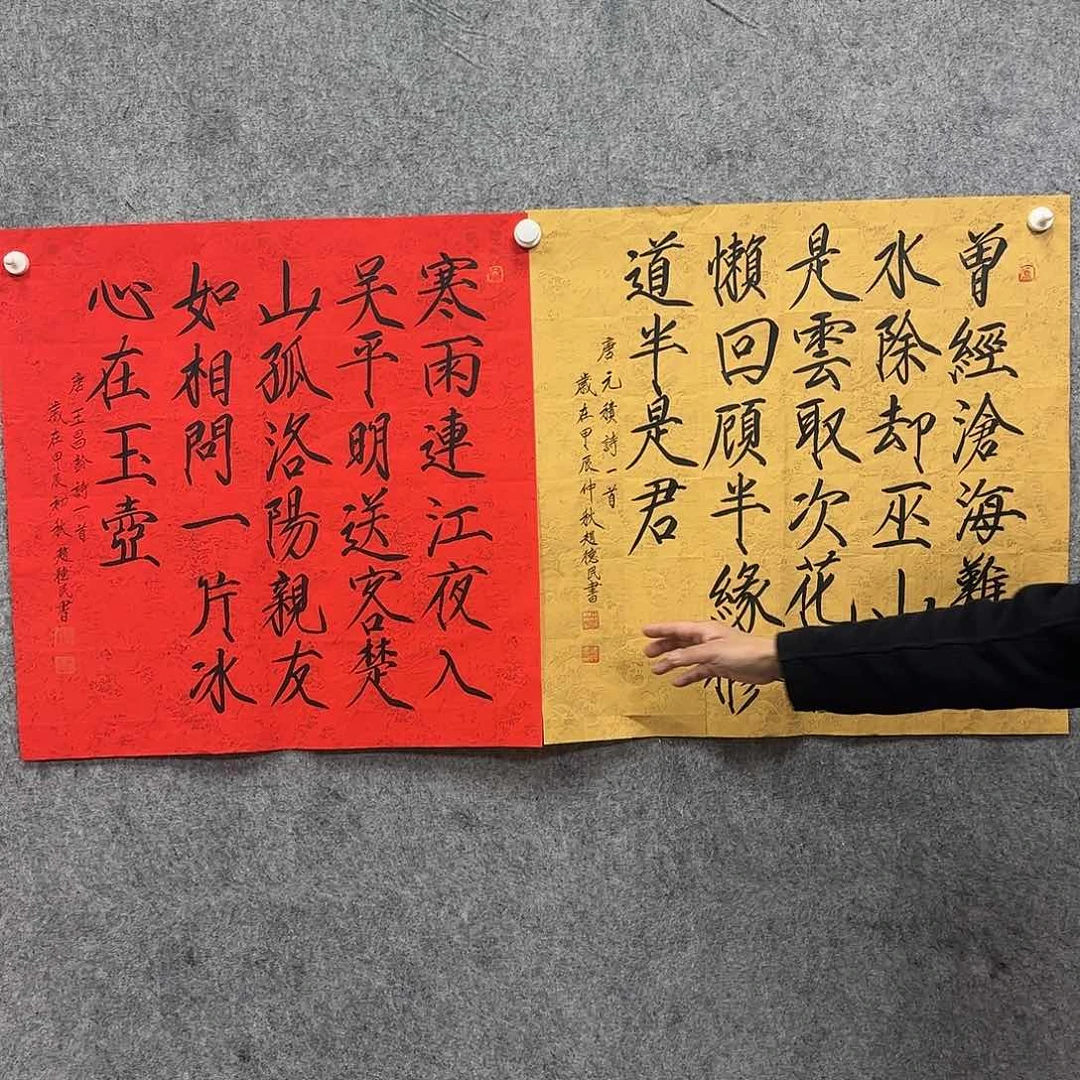 曾經滄海難
水除却巫山
是雲取次花
懶回顧半緣修
道半是君
唐元積詩一首
歲在甲辰仲秋趙德民書
寒雨連江夜入
吴平明送客楚
山孤洛陽親友
如相問一片冰
心在玉壺
唐王昌齡詩一首
歲在甲辰初秋趙德民書